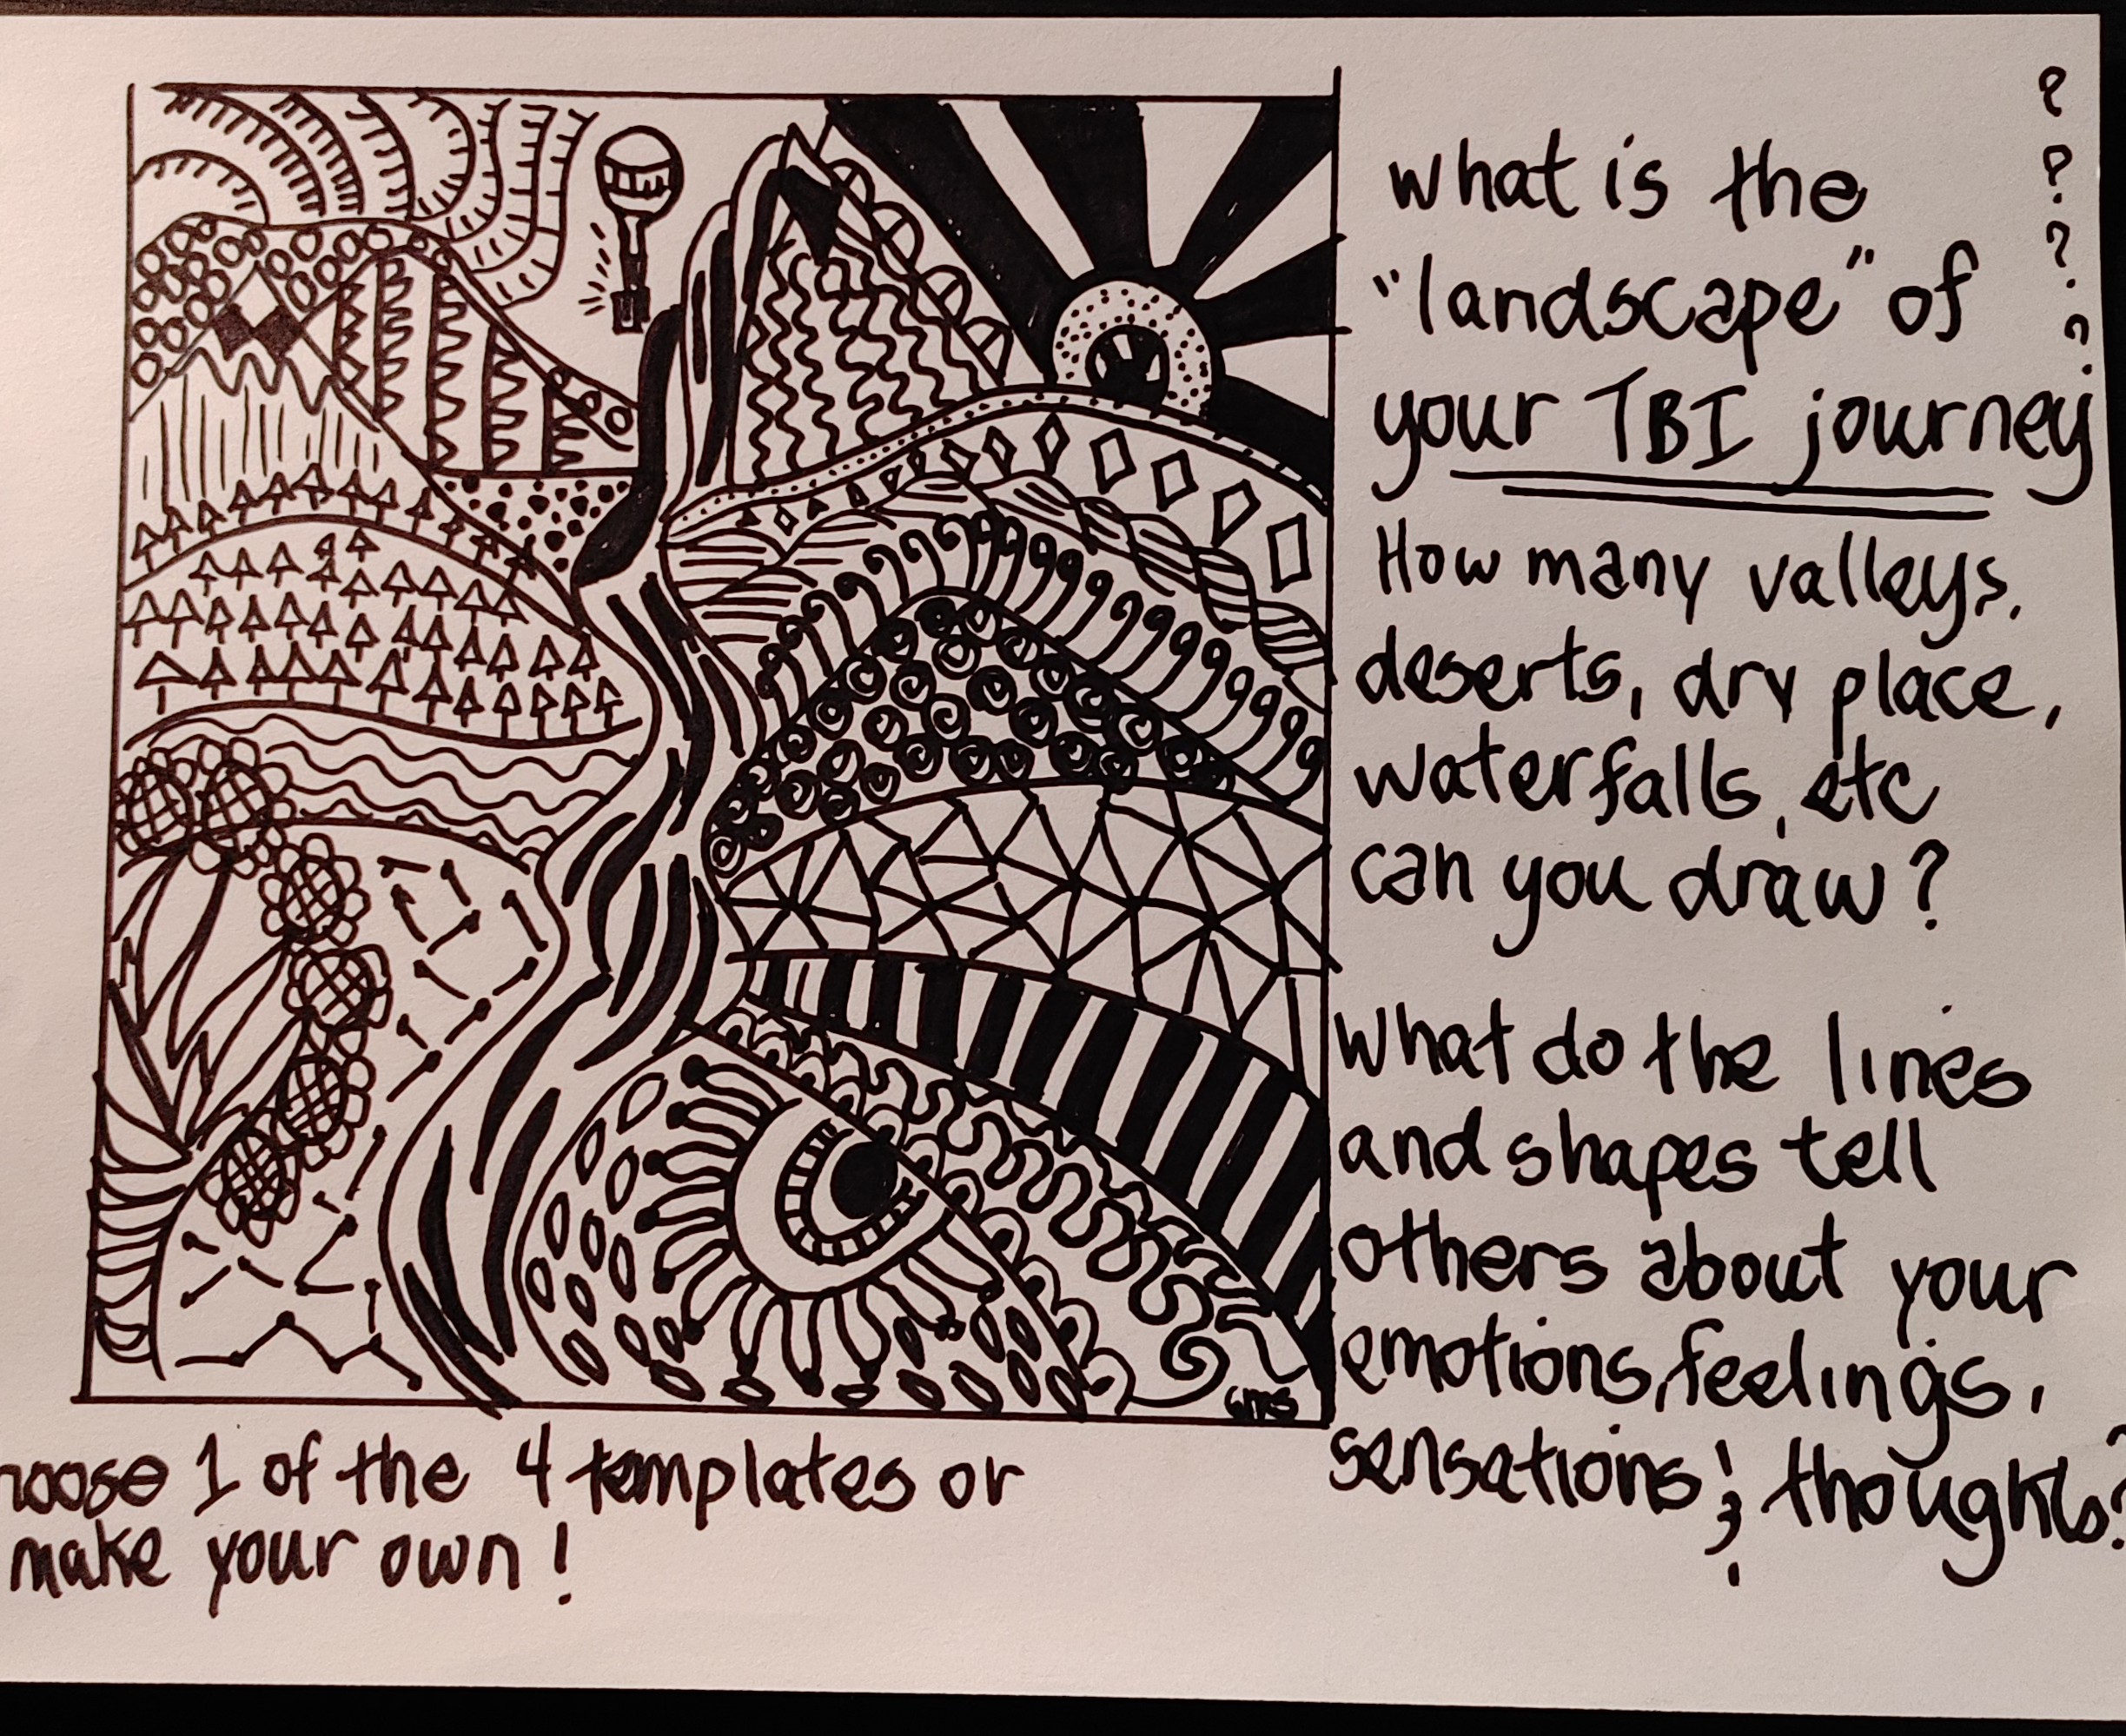 what is the
"landscape" of
your TBI journey
?
?
?
?
How many valleys,
deserts, dry place,
waterfalls, etc
can you draw?
What do the lines
and shapes tell
others about your
emotions, feelings,
sensations & thoughts?
hoose 1 of the 4 templates or
make your own!